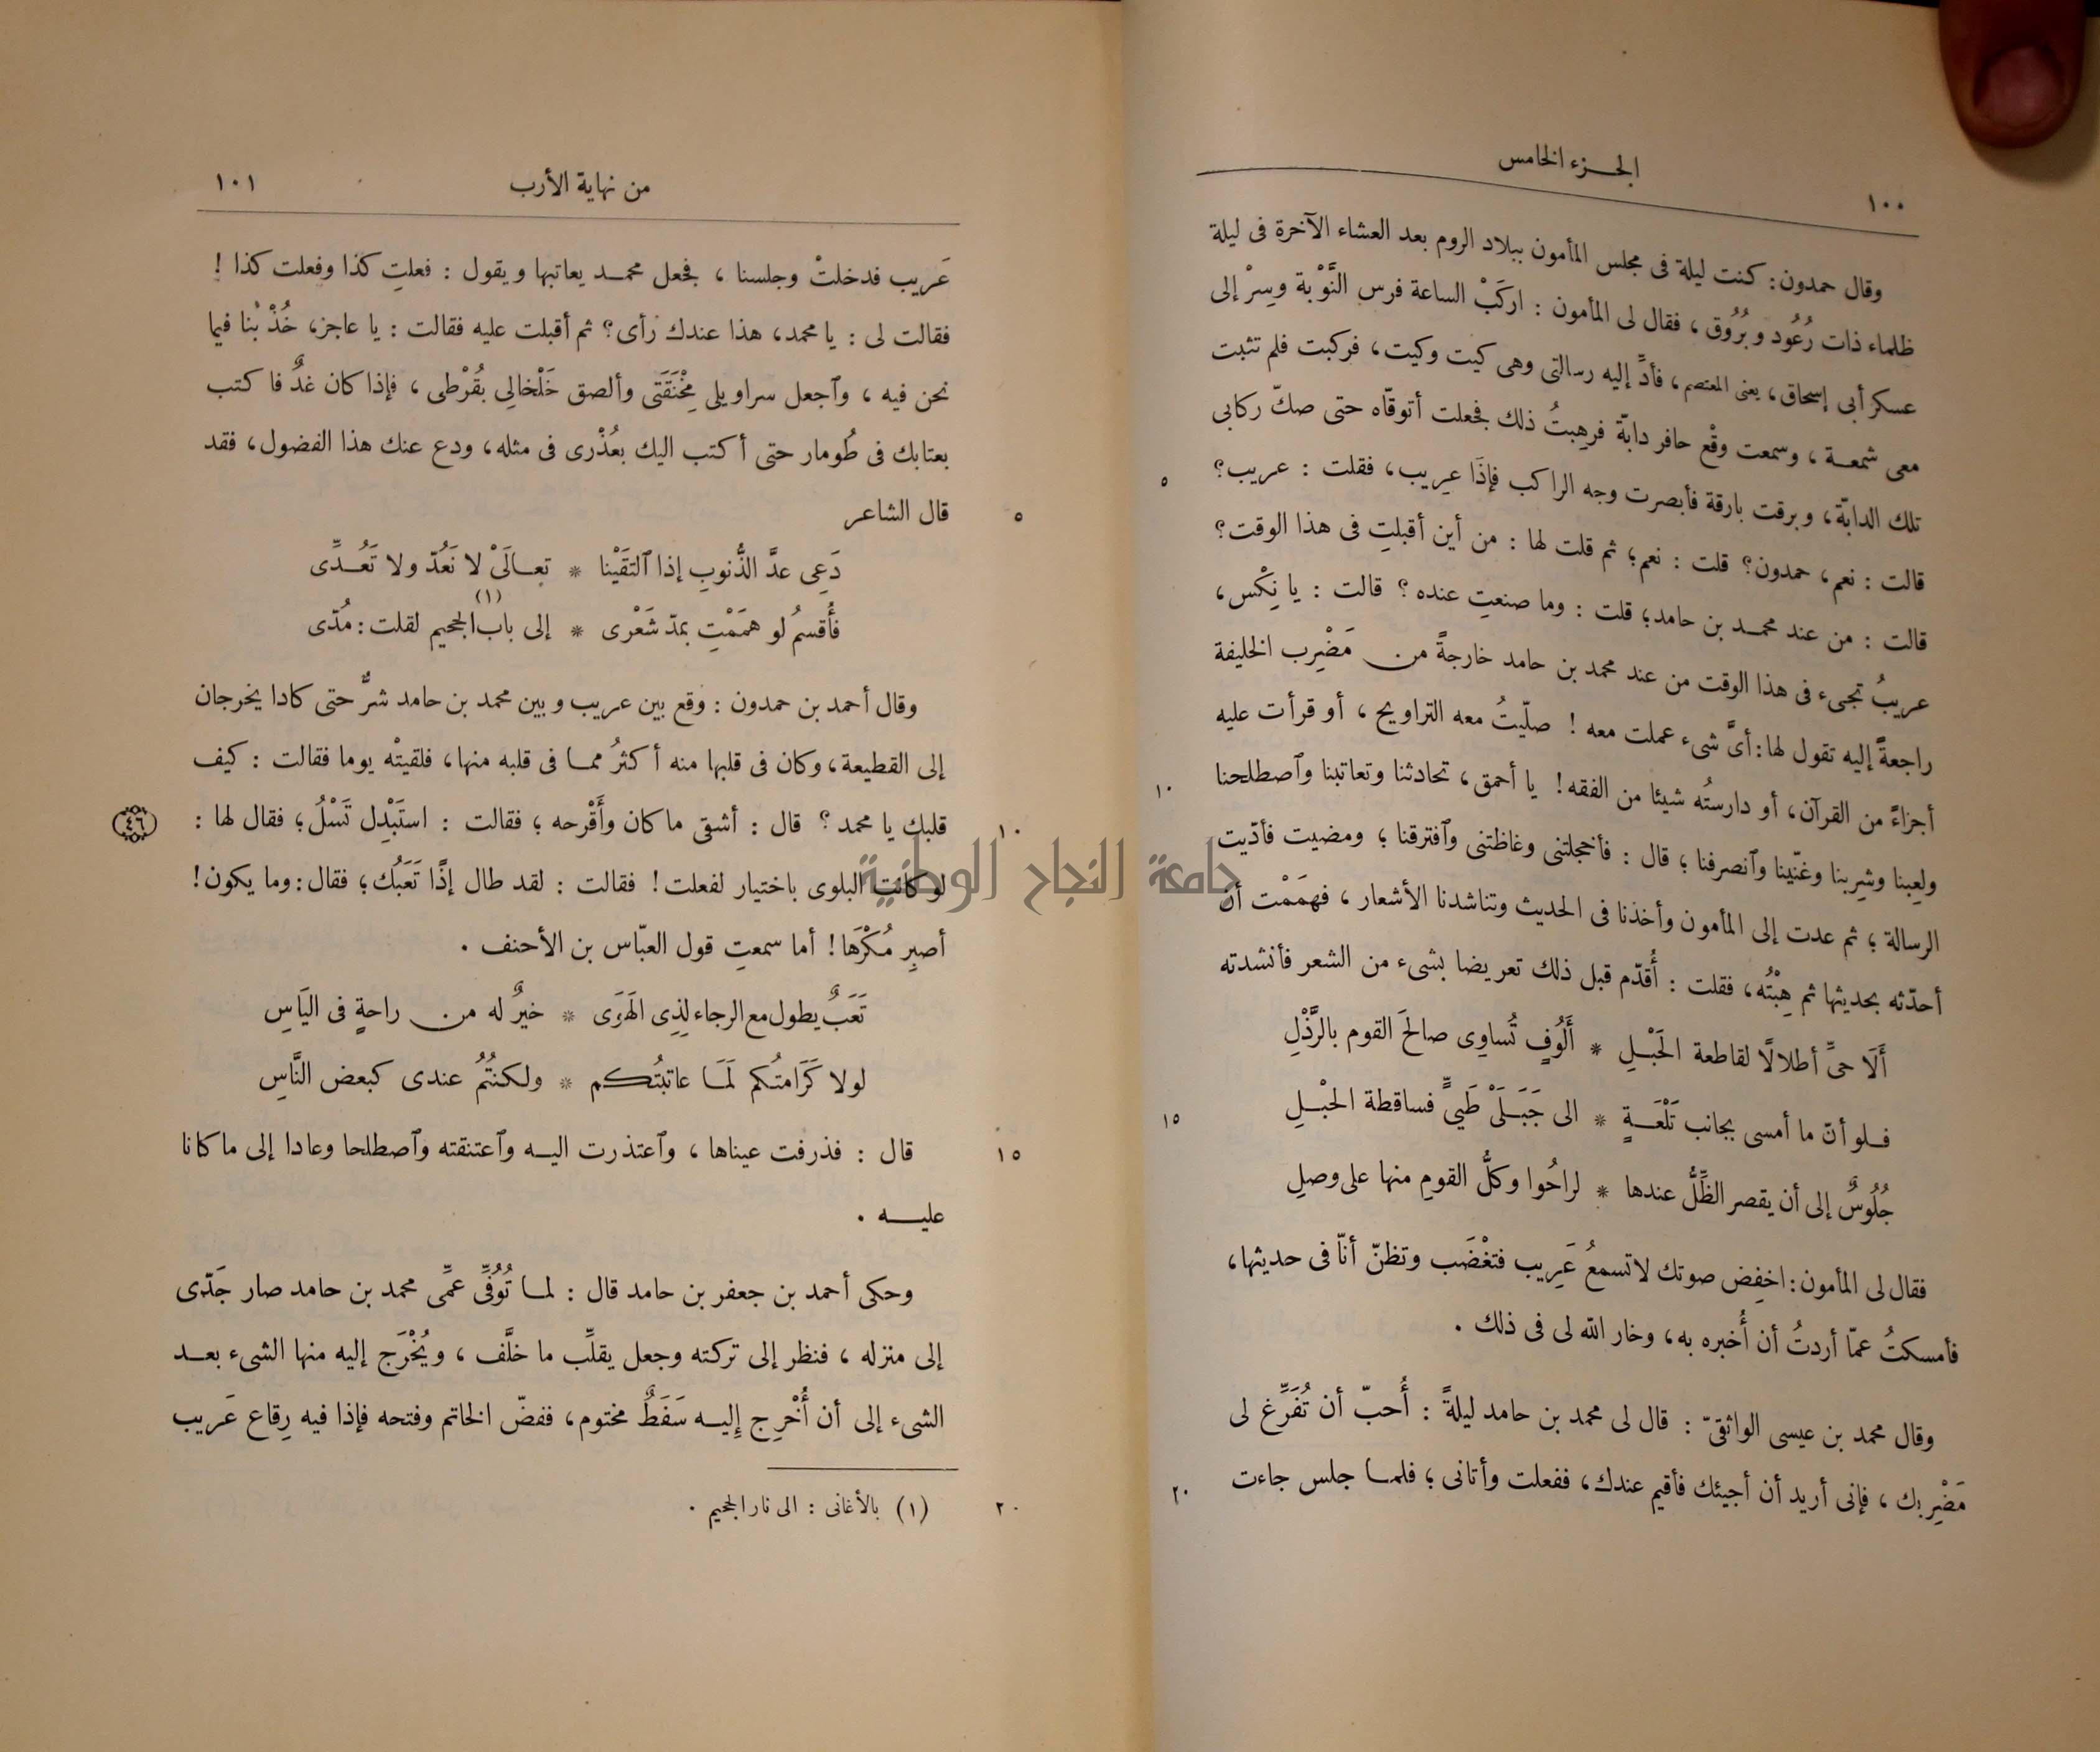 الجزء الخامس
١٠٠
وقال حمدون: كنت ليلة فى مجلس المأمون ببلاد الروم بعد العشاء الآخرة فى ليلة
ظلماء ذات رُعُود وبُرُوق، فقال لى المأمون : اركَبْ الساعة فرس النَّوْبة وسِرْ إلى
عسكر أبى إسحاق، يعنى المعتصم، فأدِّ إليه رسالتى وهى كيت وكيت، فركبت فلم تثبت
معى شمعة، وسمعت وقْع حافر دابّة فرهِبتُ ذلك فجعلت أتوقّاه حتى صكّ ركابى
٥
تلك الدابّة، وبرقت بارقة فأبصرت وجه الراكب فإذَا عريب، فقلت : عريب؟
قالت : نعم، حمدون؟ قلت : نعم؛ ثم قلت لها : من أين أقبلتِ فى هذا الوقت؟
قالت : من عند محمد بن حامد؛ قلت : وما صنعتِ عنده؟ قالت : يا نِكْس،
عريبُ تجىء فى هذا الوقت من عند محمد بن حامد خارجةً من مَضْرِب الخليفة
راجعةً إليه تقول لها: أىَّ شىء عملت معه! صلّيتُ معه التراويح، أو قرأت عليه
١٠
أجزاءً من القرآن، أو دارستُه شيئا من الفقه! يا أحمق، تحادثنا وتعاتبنا وٱصطلحنا
ولعِبنا وشربنا وغنّينا وٱنصرفنا؛ قال : فأخجلتنى وغاظتنى وٱفترقنا؛ ومضيت فأدّيت
الرسالة؛ ثم عدت إلى المأمون وأخذنا فى الحديث وتناشدنا الأشعار، فهمَمْت أن
أحدّثه بحديثها ثم هِبْتُه، فقلت : أُقدّم قبل ذلك تعريضا بشىء من الشعر فأنشدته
أَلَا حىِّ أطلالًا لقاطعة الحَبْلِ * أَلُوفٍ تُساوِى صالحَ القوم بالرَّذْلِ
١٥
فلو أنّ ما أمسى بجانب تَلْعَةٍ * الى جَبَلَىْ طَيٍّ فساقطة الحبْلِ
جُلُوسٌ إلى أن يقصر الظِّلُّ عندها * لراحُوا وكلُّ القومِ منها على وصلِ
فقال لى المأمون: اخفِض صوتك لا تسمعُ عَرِيب فتغْضَب وتظنّ أنّا فى حديثها،
فأمسكتُ عمّا أردتُ أن أُخبره به، وخار الله لى فى ذلك .
وقال محمد بن عيسى الواثقىّ : قال لى محمد بن حامد ليلةً : أُحبّ أن تُفَرِّغ لى
٢٠
مَضْرِبك، فإنى أريد أن أجيئك فأقيم عندك، ففعلت وأتانى؛ فلما جلس جاءت
من نهاية الأرب
١٠١
عَريب فدخلتْ وجلسنا، فجعل محمد يعاتبها ويقول : فعلتِ كذا وفعلت كذا!
فقالت لى : يا محمد، هذا عندك رأى؟ ثم أقبلت عليه فقالت : يا عاجز، خُذْ بْنا فيما
نحن فيه، وٱجعل سراويلى مِخْنَقَتى وألصق خَلْخالِى بقُرْطى، فإذا كان غدٌ فاكتب
بعتابك فى طُومار حتى أكتب اليك بعُذْرى فى مثله، ودع عنك هذا الفضول، فقد
٥
قال الشاعر
دَعِى عدَّ الذُّنوبِ إذا ٱلتقَيْنا * تعالَىْ لا نَعُدّ ولا تَعُدِّى
فأُقسمُ لو همَمْتِ بمدّ شَعْرى * إلى باب (١) الجحيم لقلت: مُدّى
وقال أحمد بن حمدون : وقع بين عريب وبين محمد بن حامد شرٌّ حتى كادا يخرجان
إلى القطيعة، وكان فى قلبها منه أكثرُ مما فى قلبه منها، فلقيتْه يوما فقالت : كيف
١٠
قلبك يا محمد؟ قال : أشقى ما كان وأَقْرحه؛ فقالت : استَبْدِل تَسْلُ؛ فقال لها :
٤٦
لو كانت البلوى باختيار لفعلت! فقالت : لقد طال إذًا تَعَبُك؛ فقال: وما يكون!
أصبِر مُكْرَها! أما سمعتِ قول العبّاس بن الأحنف .
تَعَبٌ يطول مع الرجاء لِذِى الهَوَى * خيرٌ له من راحةٍ فى اليَاسِ
لولا كَرَامتُكم لَمَا عاتبتُكم * ولكنتُمُ عندى كبعض النَّاسِ
١٥
قال : فذرفت عيناها، وٱعتذرت اليه وٱعتنقته وٱصطلحا وعادا إلى ما كانا
عليه .
وحكى أحمد بن جعفر بن حامد قال : لما تُوُفِّى عمِّى محمد بن حامد صار جَدّى
إلى منزله، فنظر إلى تركته وجعل يقلِّب ما خلَّف، ويُخْرَج إليه منها الشىء بعد
الشىء إلى أن أُخْرِج إليه سَفَطٌ مختوم، ففضّ الخاتم وفتحه فإذا فيه رِقاع عَريب
٢٠
(١) بالأغانى : الى نار الجحيم .
جامعة النجاح الوطنية